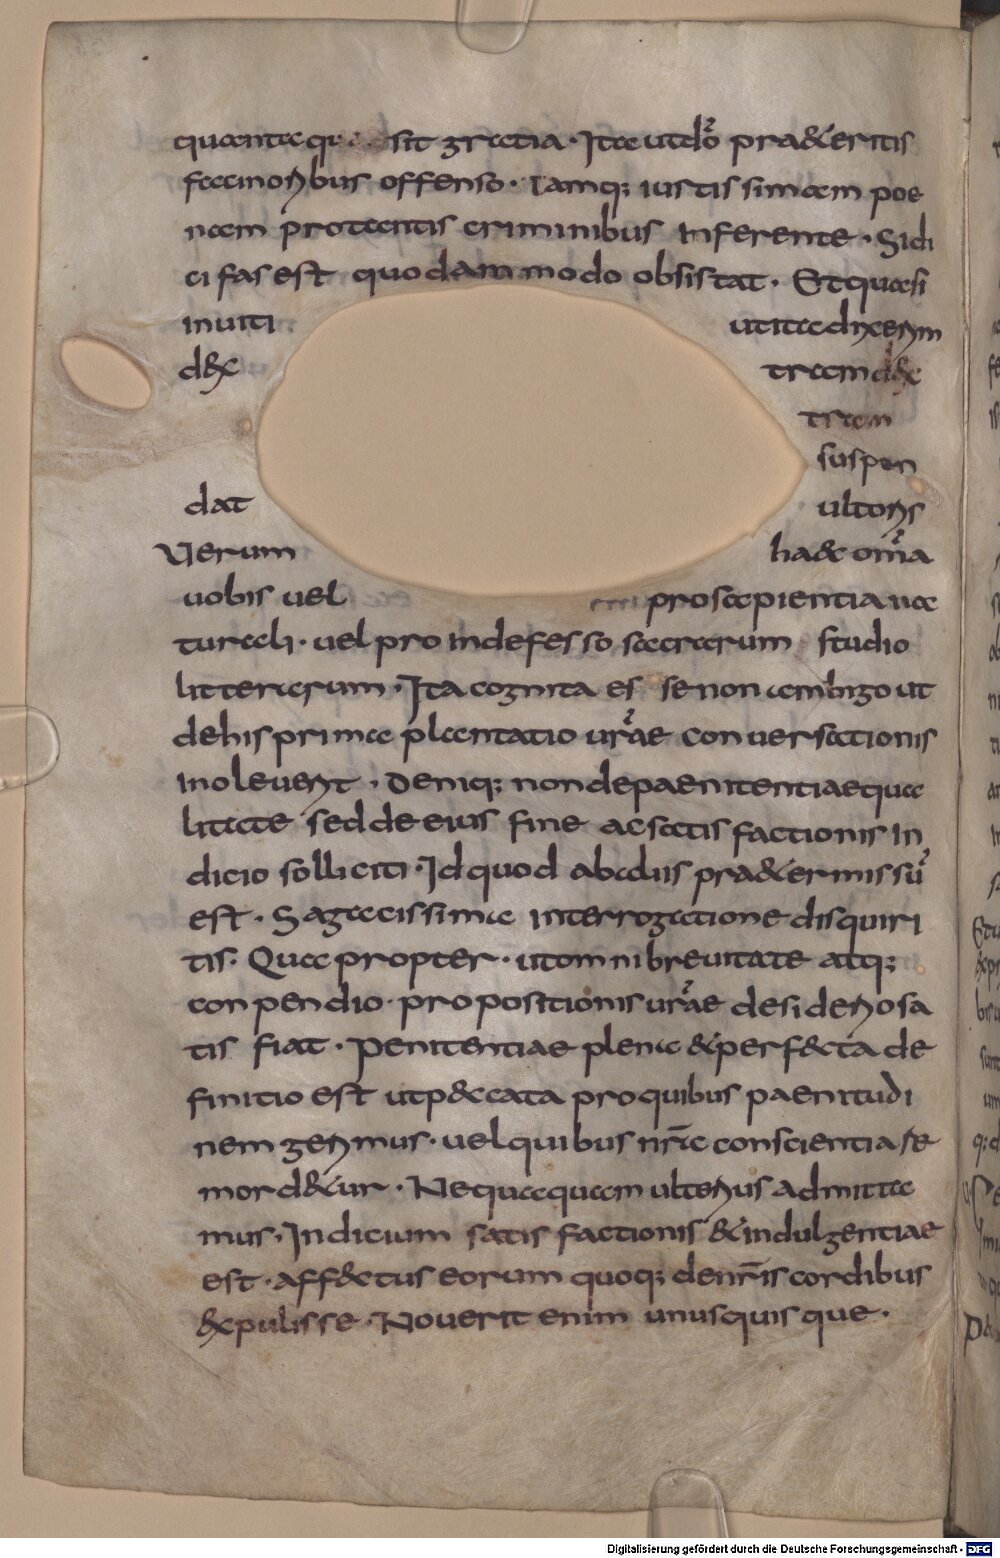 quantaque sit gratia · Ita ut uero praeteritis
facinoribus offenso · Iamq; iustissimam poe
nam protantis criminibus Inferente · Sidi
ci fas est quodammodo obsistat · Et quasi
inuiti ut ita dixerim
dex tram dex
tram
suspen
dat ultoris
Verum haec om̅a
uobis uel pro sapientia na
turali · uel pro indefesso sacrarum studio
litterarum · Ita cognita esse non ambigo ut
de his prima plantatio urae conuersationis
inoleuerit · Deniq; non de paenitentiae qua
litate sed de eius fine ac satisfactionis in
dicio solliciti · Id quod ab aliis praetermissu̅
est · Sagacissima interrogatione disquiri
tis · Quapropter · ut omni breuitate atq;
conpendio · propositionis urae desiderio sa
tis fiat · Penitentiae plena & perfecta de
finitio est ut peccata pro quibus paenitudi
nem gerimus · uel quibus nr̅a conscientia re
mordetur · Nequaquam ulterius admitta
mus · Indicium satisfactionis & indulgentiae
est · affectus eorum quoq; de nr̅is cordibus
expulisse · Nouerit enim unusquisque ·
Digitalisierung gefördert durch die Deutsche Forschungsgemeinschaft · DFG